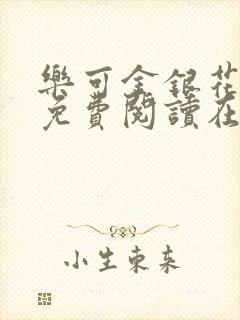 樂可金銀花
免費閱讀在
小生東来